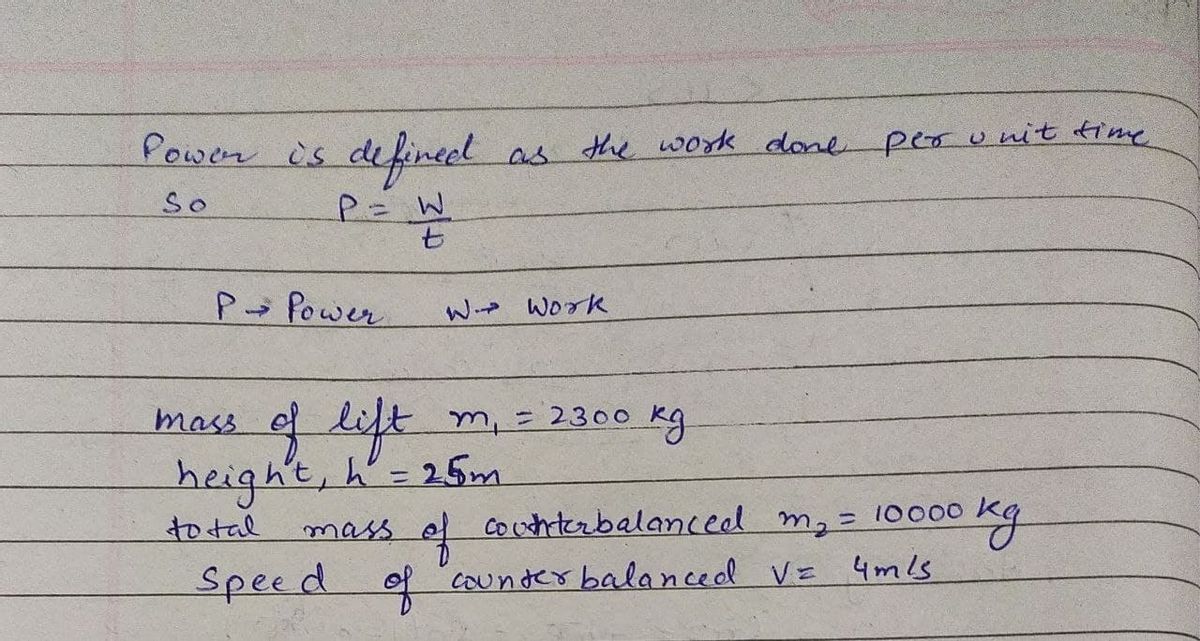 Power is defined as the work done per unit time
so P = W/t
P → Power W → Work
mass of lift m₁ = 2300 kg
height, h = 25m
total mass of counterbalanced m₂ = 10000 kg
Speed of counterbalanced v = 4m/s